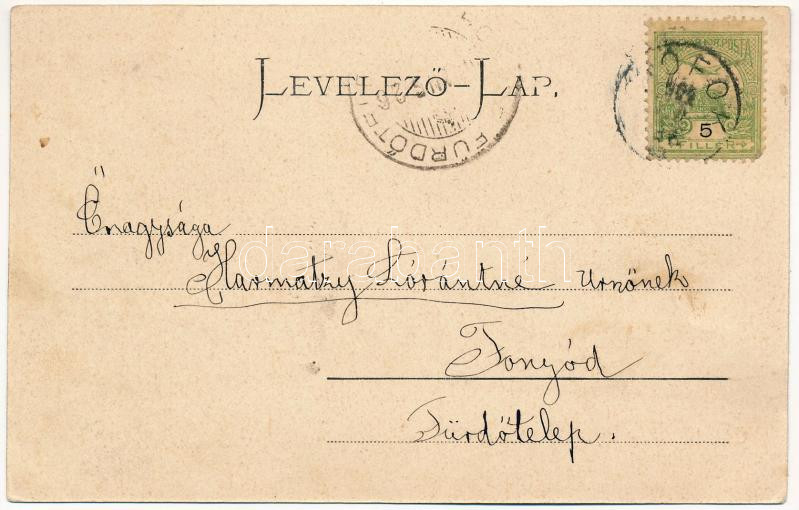 LEVELEZŐ-LAP.
FÜRDŐTE
POSTA
5
FILLÉR
Őnagysága
Harmatzy Lórántné Urnőnek
Fonyód
Fürdőtelep.
darabanth